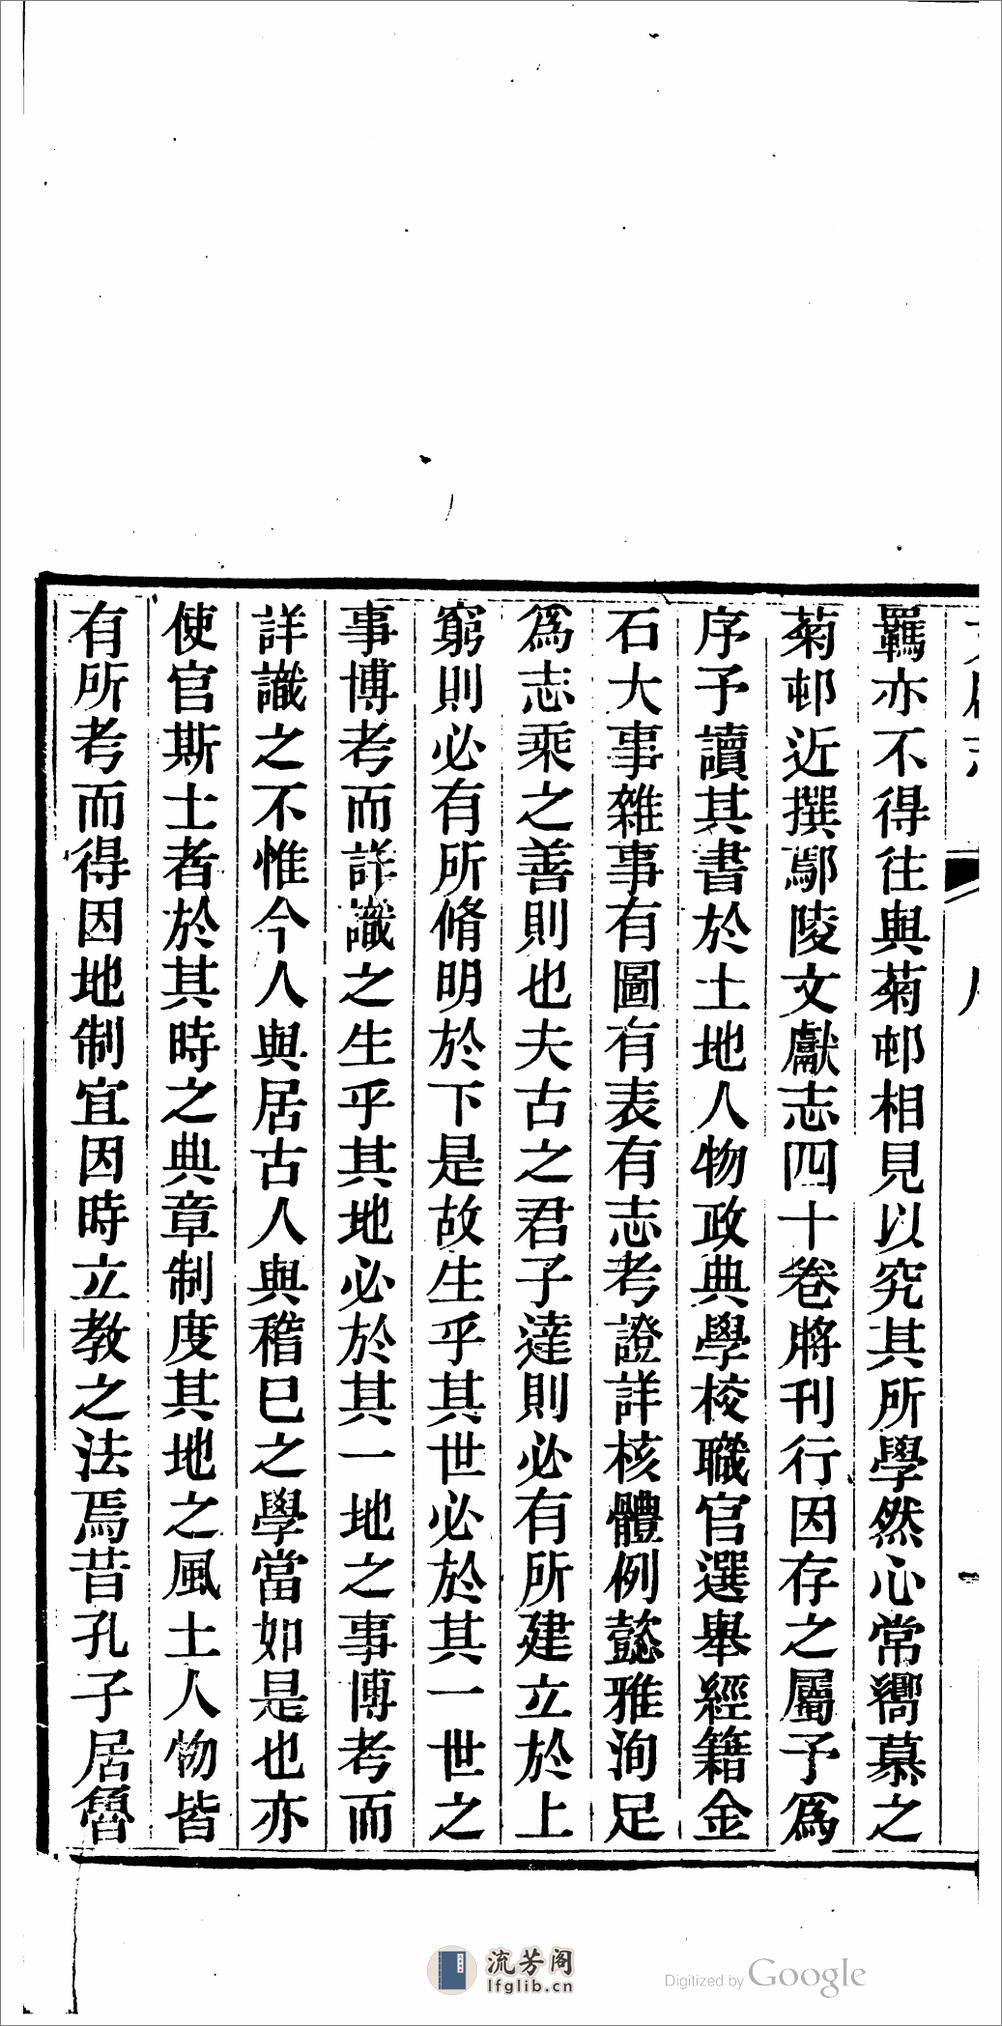 羈亦不得往與菊邨相見以究其所學然心常嚮慕之
菊邨近撰鄢陵文獻志四十卷將刊行因存之屬予爲
序予讀其書於土地人物政典學校職官選舉經籍金
石大事雜事有圖有表有志考證詳核體例懿雅洵足
爲志乘之善則也夫古之君子達則必有所建立於上
窮則必有所脩明於下是故生乎其世必於其一世之
事博考而詳識之生乎其地必於其一地之事博考而
詳識之不惟今人與居古人與稽巳之學當如是也亦
使官斯土者於其時之典章制度其地之風土人物皆
有所考而得因地制宜因時立教之法焉昔孔子居魯
流芳阁
lfglib.cn
Digitized by Google